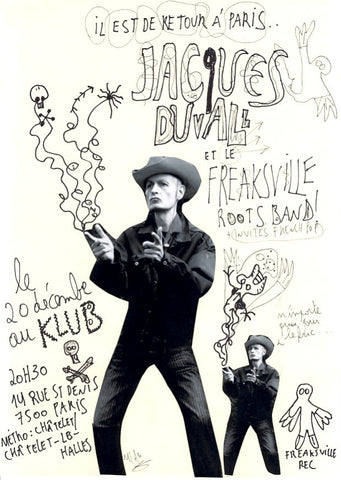 iL EST DE RETOUR À PARIS..
JACQUES
DUVALL
ET LE
FREAKSVILLE
ROOTS BAND!
+ INVITES FRENCH POP
le
20 décembre
au KLUB
20H30
14 RUE ST DENIS
7500 PARIS
MÉTRO: CHÂTELET/
CHÂTELET-LES-
HALLES
n'importe
quoi pour
le fric...
FREAKSVILLE
REC